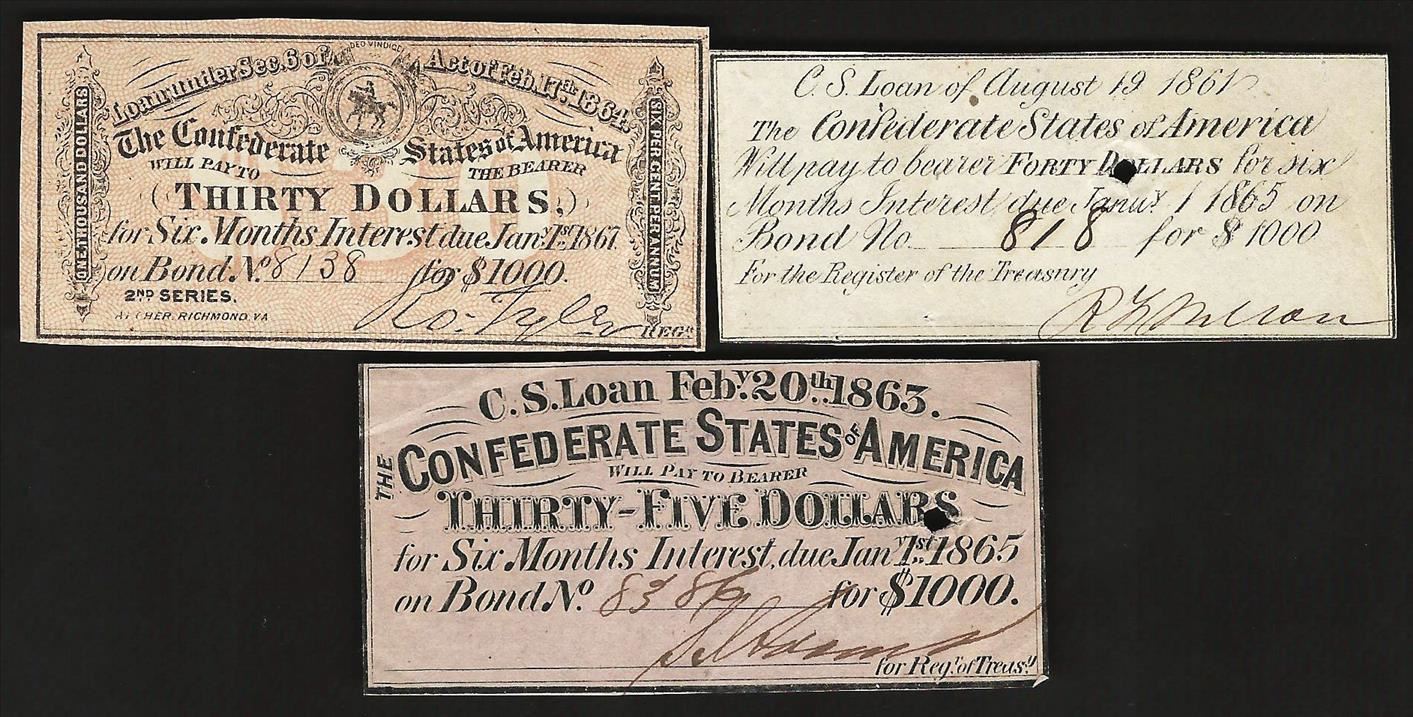 Loan under Sec. 6 of Act of Feb. 17th 1864.
DEO VINDICE
ONE THOUSAND DOLLARS
SIX PER CENT. PER ANNUM
The Confederate States of America
WILL PAY TO THE BEARER
THIRTY DOLLARS,
for Six Months Interest due Jany. 1st. 1867.
on Bond No. 8138 for $1000.
2ND SERIES.
ARCHER. RICHMOND. VA
Ro. Tyler REGr.
C. S. Loan of August 19 1861
The Confederate States of America
Will pay to bearer FORTY DOLLARS for six
Months Interest due Januy. 1 1865 on
Bond No 818 for $1000
For the Register of the Treasury
C. S. Loan Feby. 20th. 1863.
THE CONFEDERATE STATES OF AMERICA
WILL PAY TO BEARER
THIRTY-FIVE DOLLARS
for Six Months Interest, due Jany. 1st. 1865
on Bond No. 8386 for $1000.
for Regr. of Treasy.